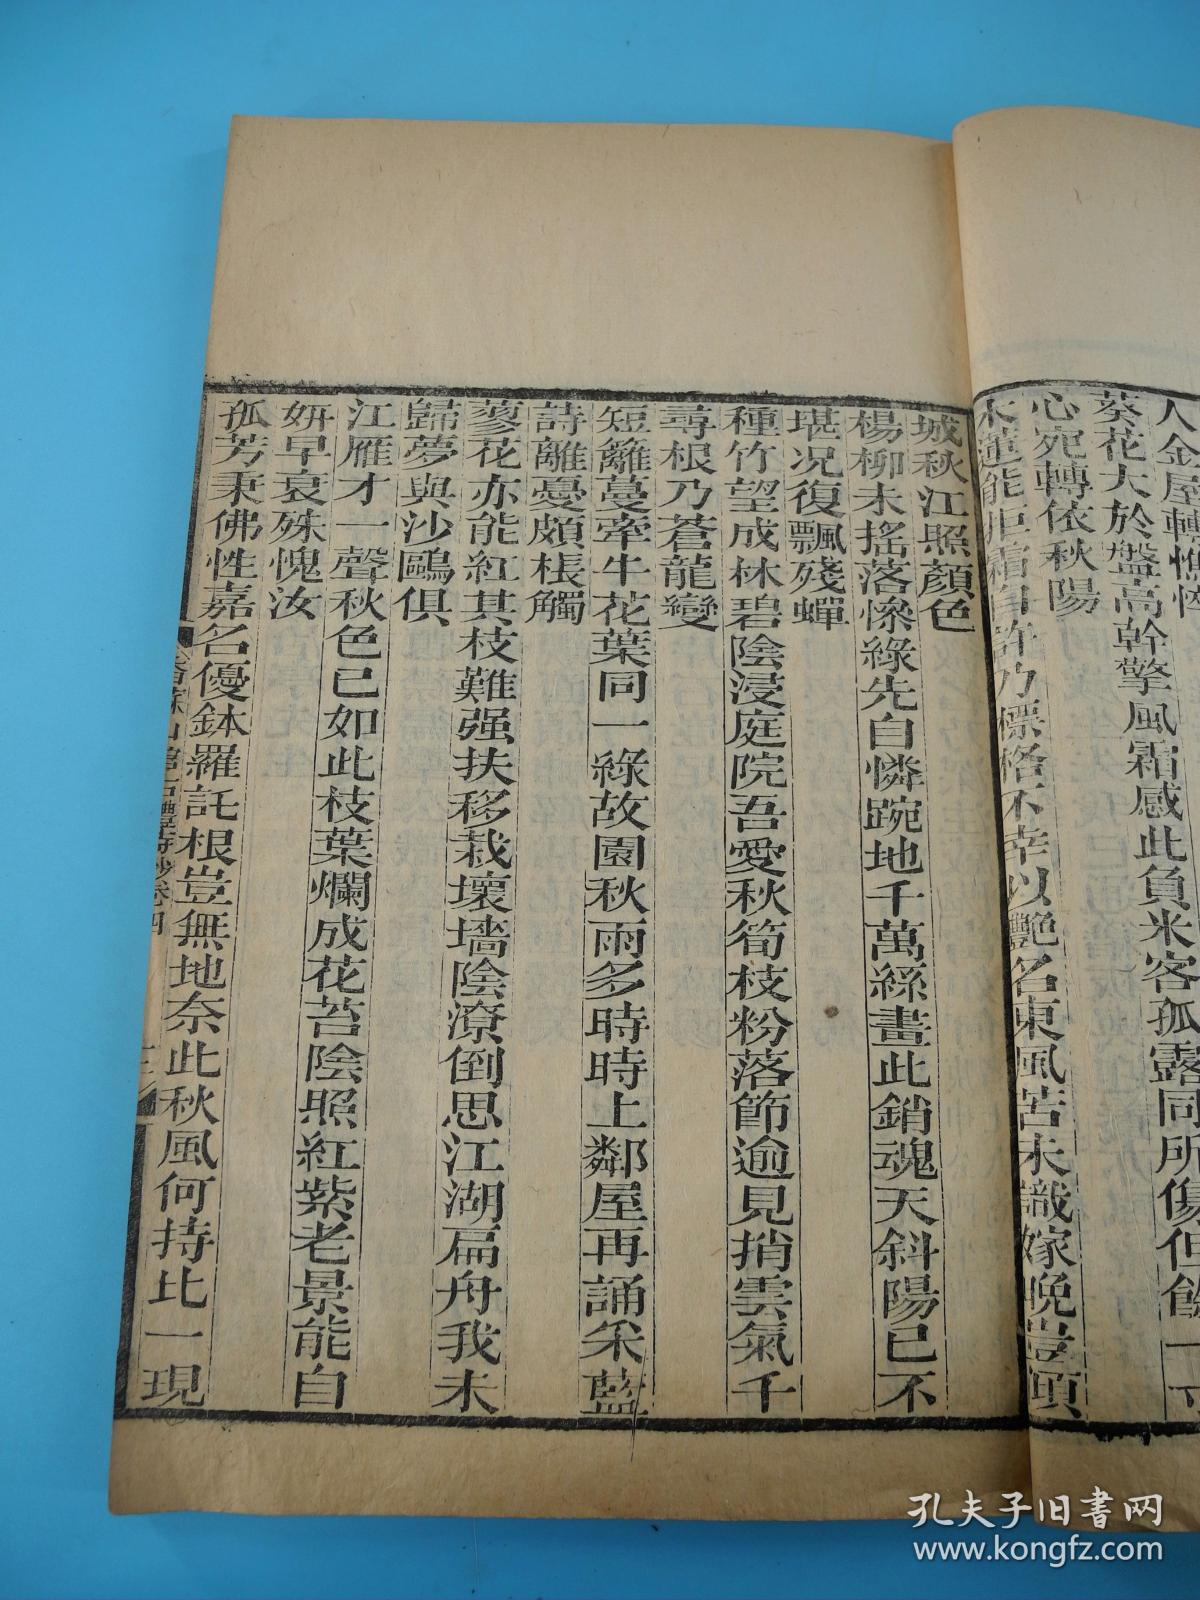 人金屋轉憔悴
葵花大於盤高幹擎風霜感此負米客孤露同所傷但餘一寸
心宛轉依秋陽
木蓮能拒霜自許乃標格不幸以艷名東風苦未識嫁晚豈須
城秋江照顏色
楊柳未搖落慘綠先自憐踠地千萬絲畫此銷魂天斜陽已不
堪況復飄殘蟬
種竹望成林碧陰浸庭院吾愛秋筍枝粉落節逾見捎雲氣千
尋根乃蒼龍變
短籬蔓牽牛花葉同一綠故園秋雨多時時上鄰屋再誦采藍
詩離憂頗棖觸
蓼花亦能紅其枝難强扶移栽壞墻陰潦倒思江湖扁舟我未
歸夢與沙鷗俱
江雁才一聲秋色已如此枝葉爛成花苔陰照紅紫老景能自
妍早衰殊愧汝
孤芳秉佛性嘉名優鉢羅託根豈無地奈此秋風何持比一現
山館古體詩鈔卷四
孔夫子旧书网
www.kongfz.com